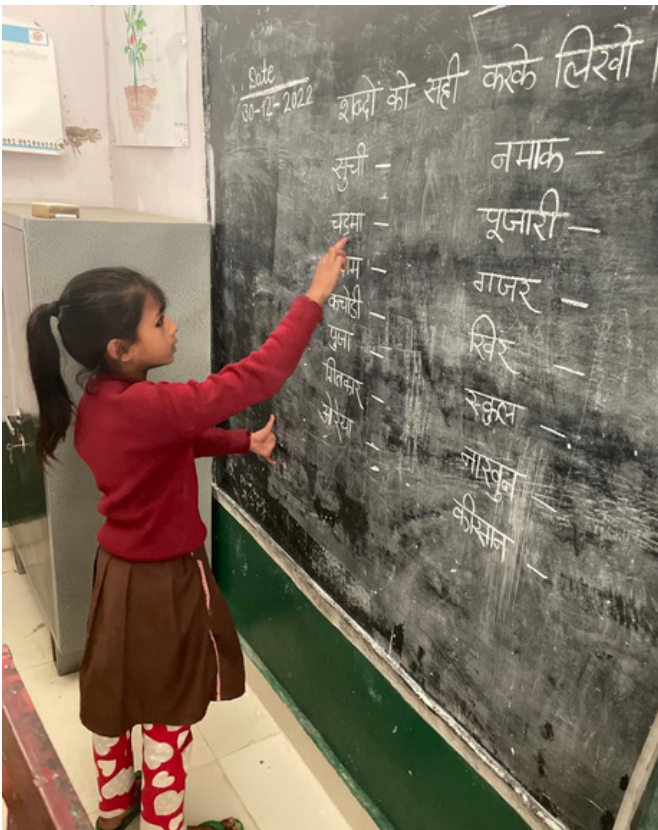 Date
30-12-2022
शब्दों को सही करके लिखो ।
सुची –
चड़मा –
कचोडी –
पुजा –
ओरया –
नमाक –
पूजारी –
गजर –
खिर –
स्कुल –
नाखुन –
कीसान –